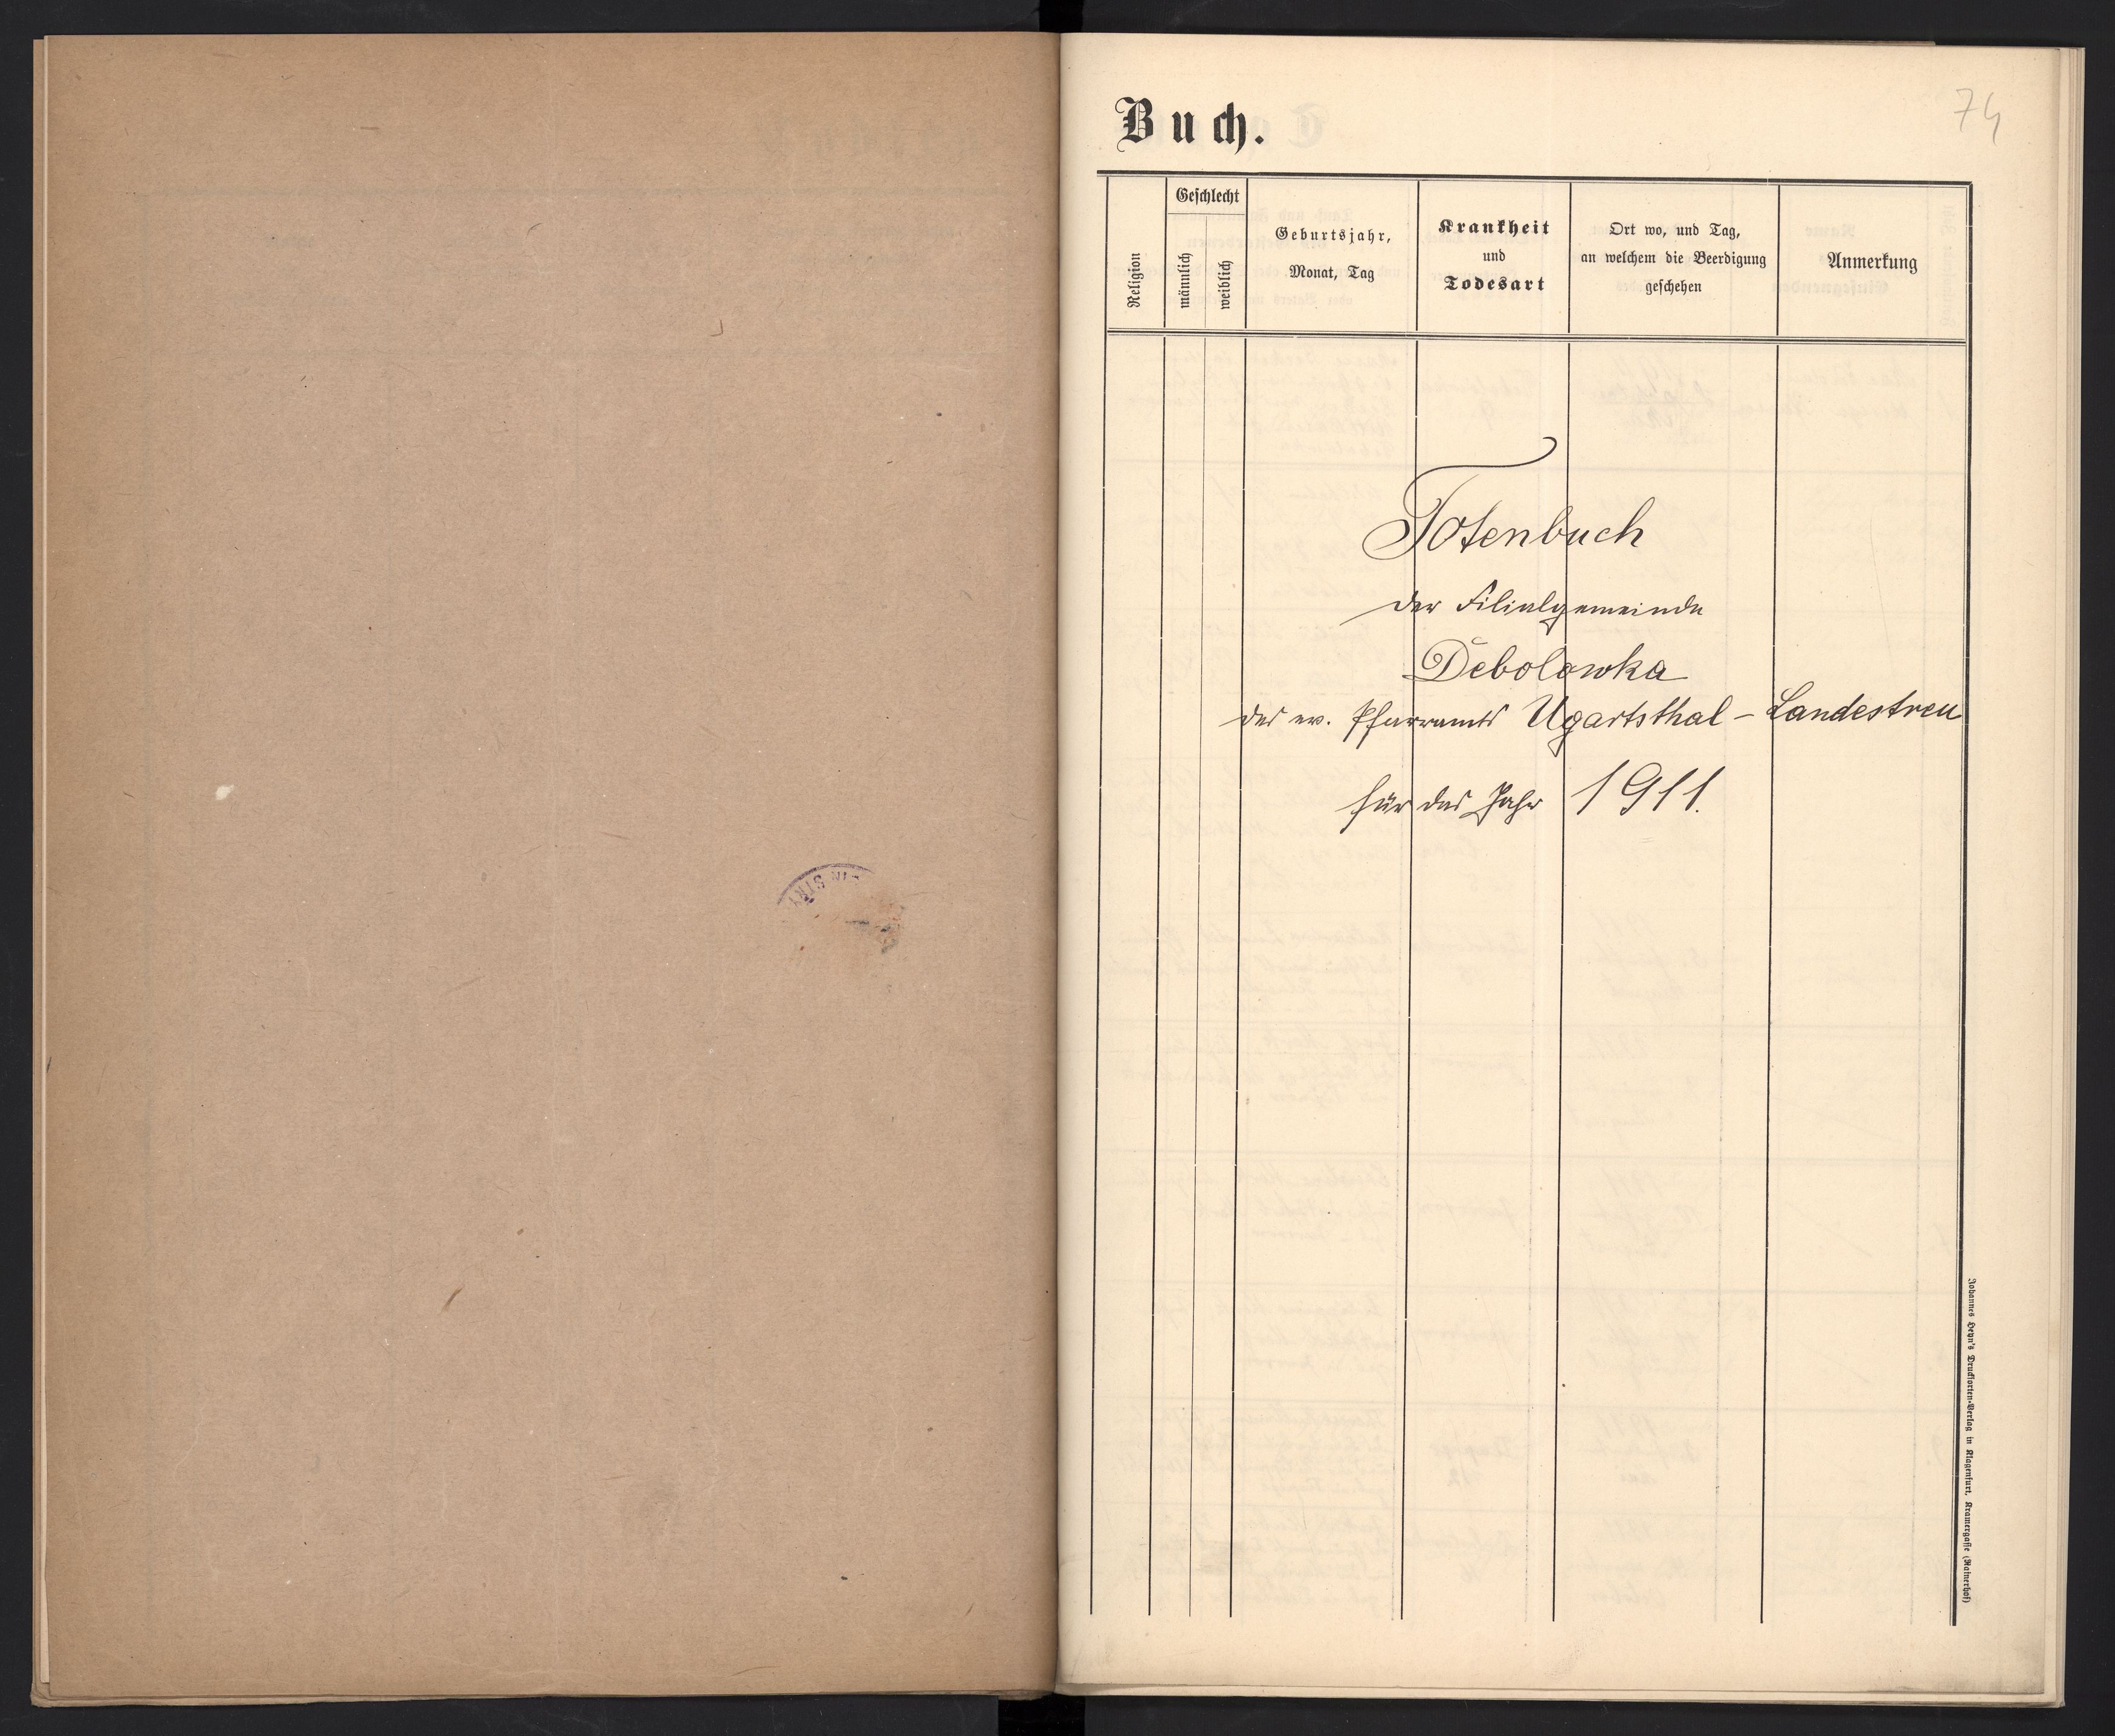 74
Buch.
Religion
Geschlecht
männlich
weiblich
Geburtsjahr,
Monat, Tag
Krankheit
und
Todesart
Ort wo, und Tag,
an welchem die Beerdigung
geschehen
Anmerkung
Totenbuch
der Filialgemeinde
Debolowka
des ev. Pfarramts Ugartsthal - Landestreu
für das Jahr 1911.
Johannes Heyn's Drucksorten-Verlag in Klagenfurt, Kramergasse (Rainerhof)